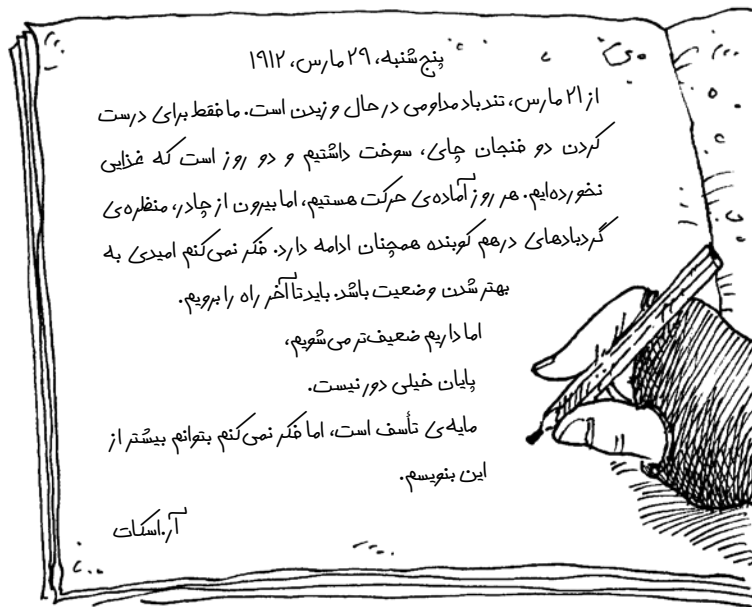 پنج‌شنبه، ۲۹ مارس، ۱۹۱۲
از ۲۱ مارس، تندباد مداومی در حال وزیدن است. ما فقط برای درست
کردن دو فنجان چای، سوخت داشتیم و دو روز است که غذایی
نخورده‌ایم. هر روز آماده‌ی حرکت هستیم، اما بیرون از چادر، منظره‌ی
گردبادهای درهم کوبنده همچنان ادامه دارد. فکر نمی‌کنم امیدی به
بهتر شدن وضعیت باشد. باید تا آخر راه را برویم.
اما داریم ضعیف‌تر می‌شویم،
پایان خیلی دور نیست.
مایه‌ی تأسف است، اما فکر نمی‌کنم بتوانم بیشتر از
این بنویسم.
آر.اسکات